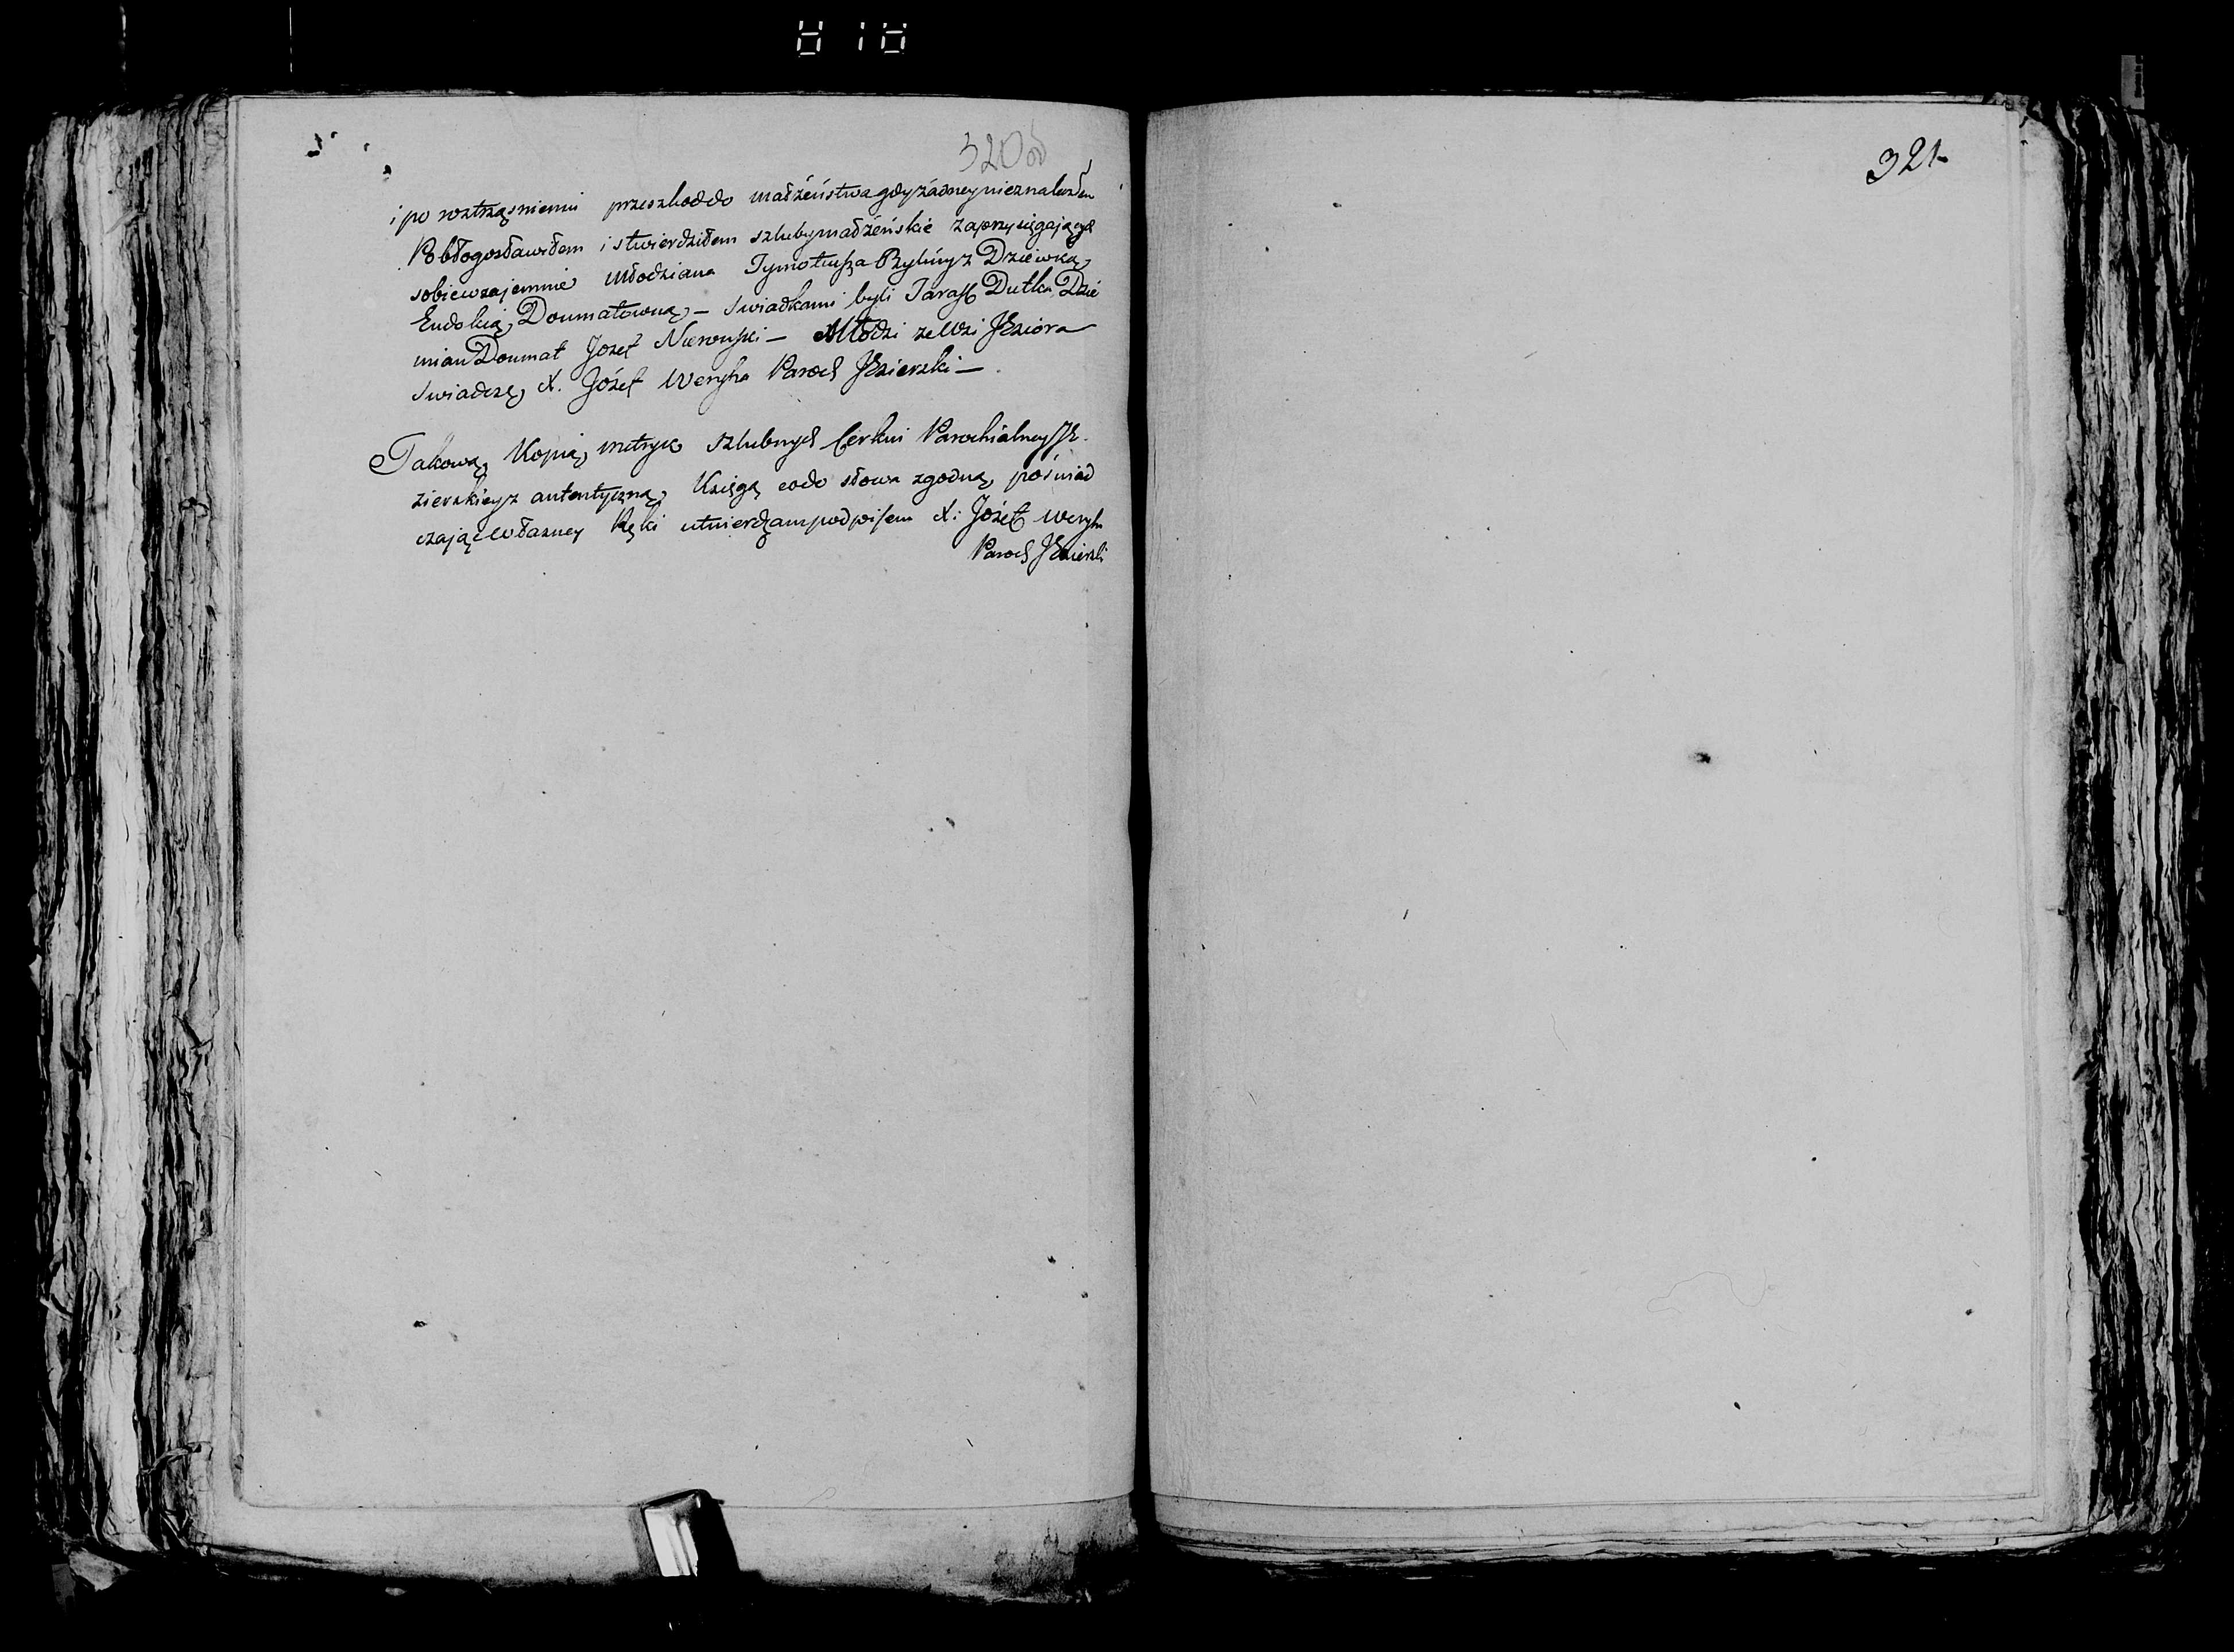 320об
i po roztrząśnieniu przeszkod do małżeństwa gdy żadney nieznalazłem
Pobłogosławiłem i stwierdziłem szluby małżeńskie zaprzysięgających
sobie wzajemnie młodziana Tymoteusza z Dziewką
Eudokią Doumatowną – Swiadkami byli Tarass Dutka, Dzie
mian Doumat Jozef – Młodzi ze Wsi JEziora
Swiadczę, X. Józef Weryha Paroch JEzierski –
Takową Kopią metryk szlubnych Cerkwi Parochialney JE-
zierskiey z autentyczną Księgą co do słowa zgodną, poświad
czając własney Ręki utwierdzam podpisem X: Józef Weryha
Paroch JEzierski
321